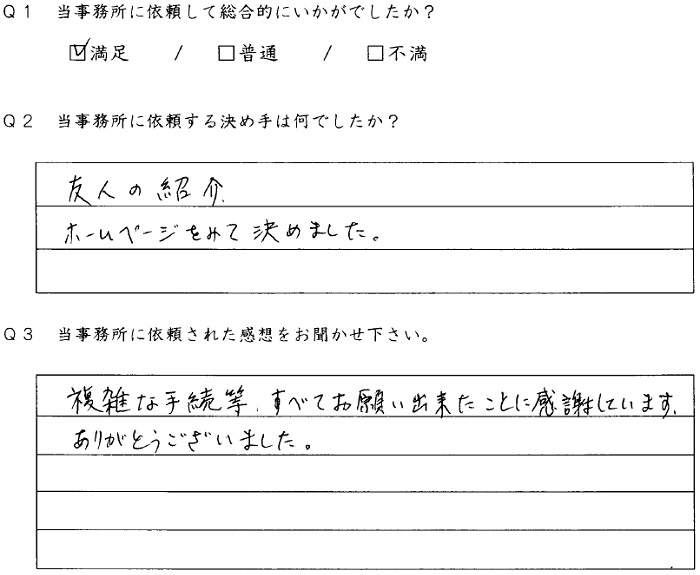 Ｑ１　当事務所に依頼して総合的にいかがでしたか？
☑満足　/　□普通　/　□不満
Ｑ２　当事務所に依頼する決め手は何でしたか？
友人の紹介
ホームページをみて決めました。
Ｑ３　当事務所に依頼された感想をお聞かせ下さい。
複雑な手続等、すべてお願い出来たことに感謝しています、
ありがとうございました。